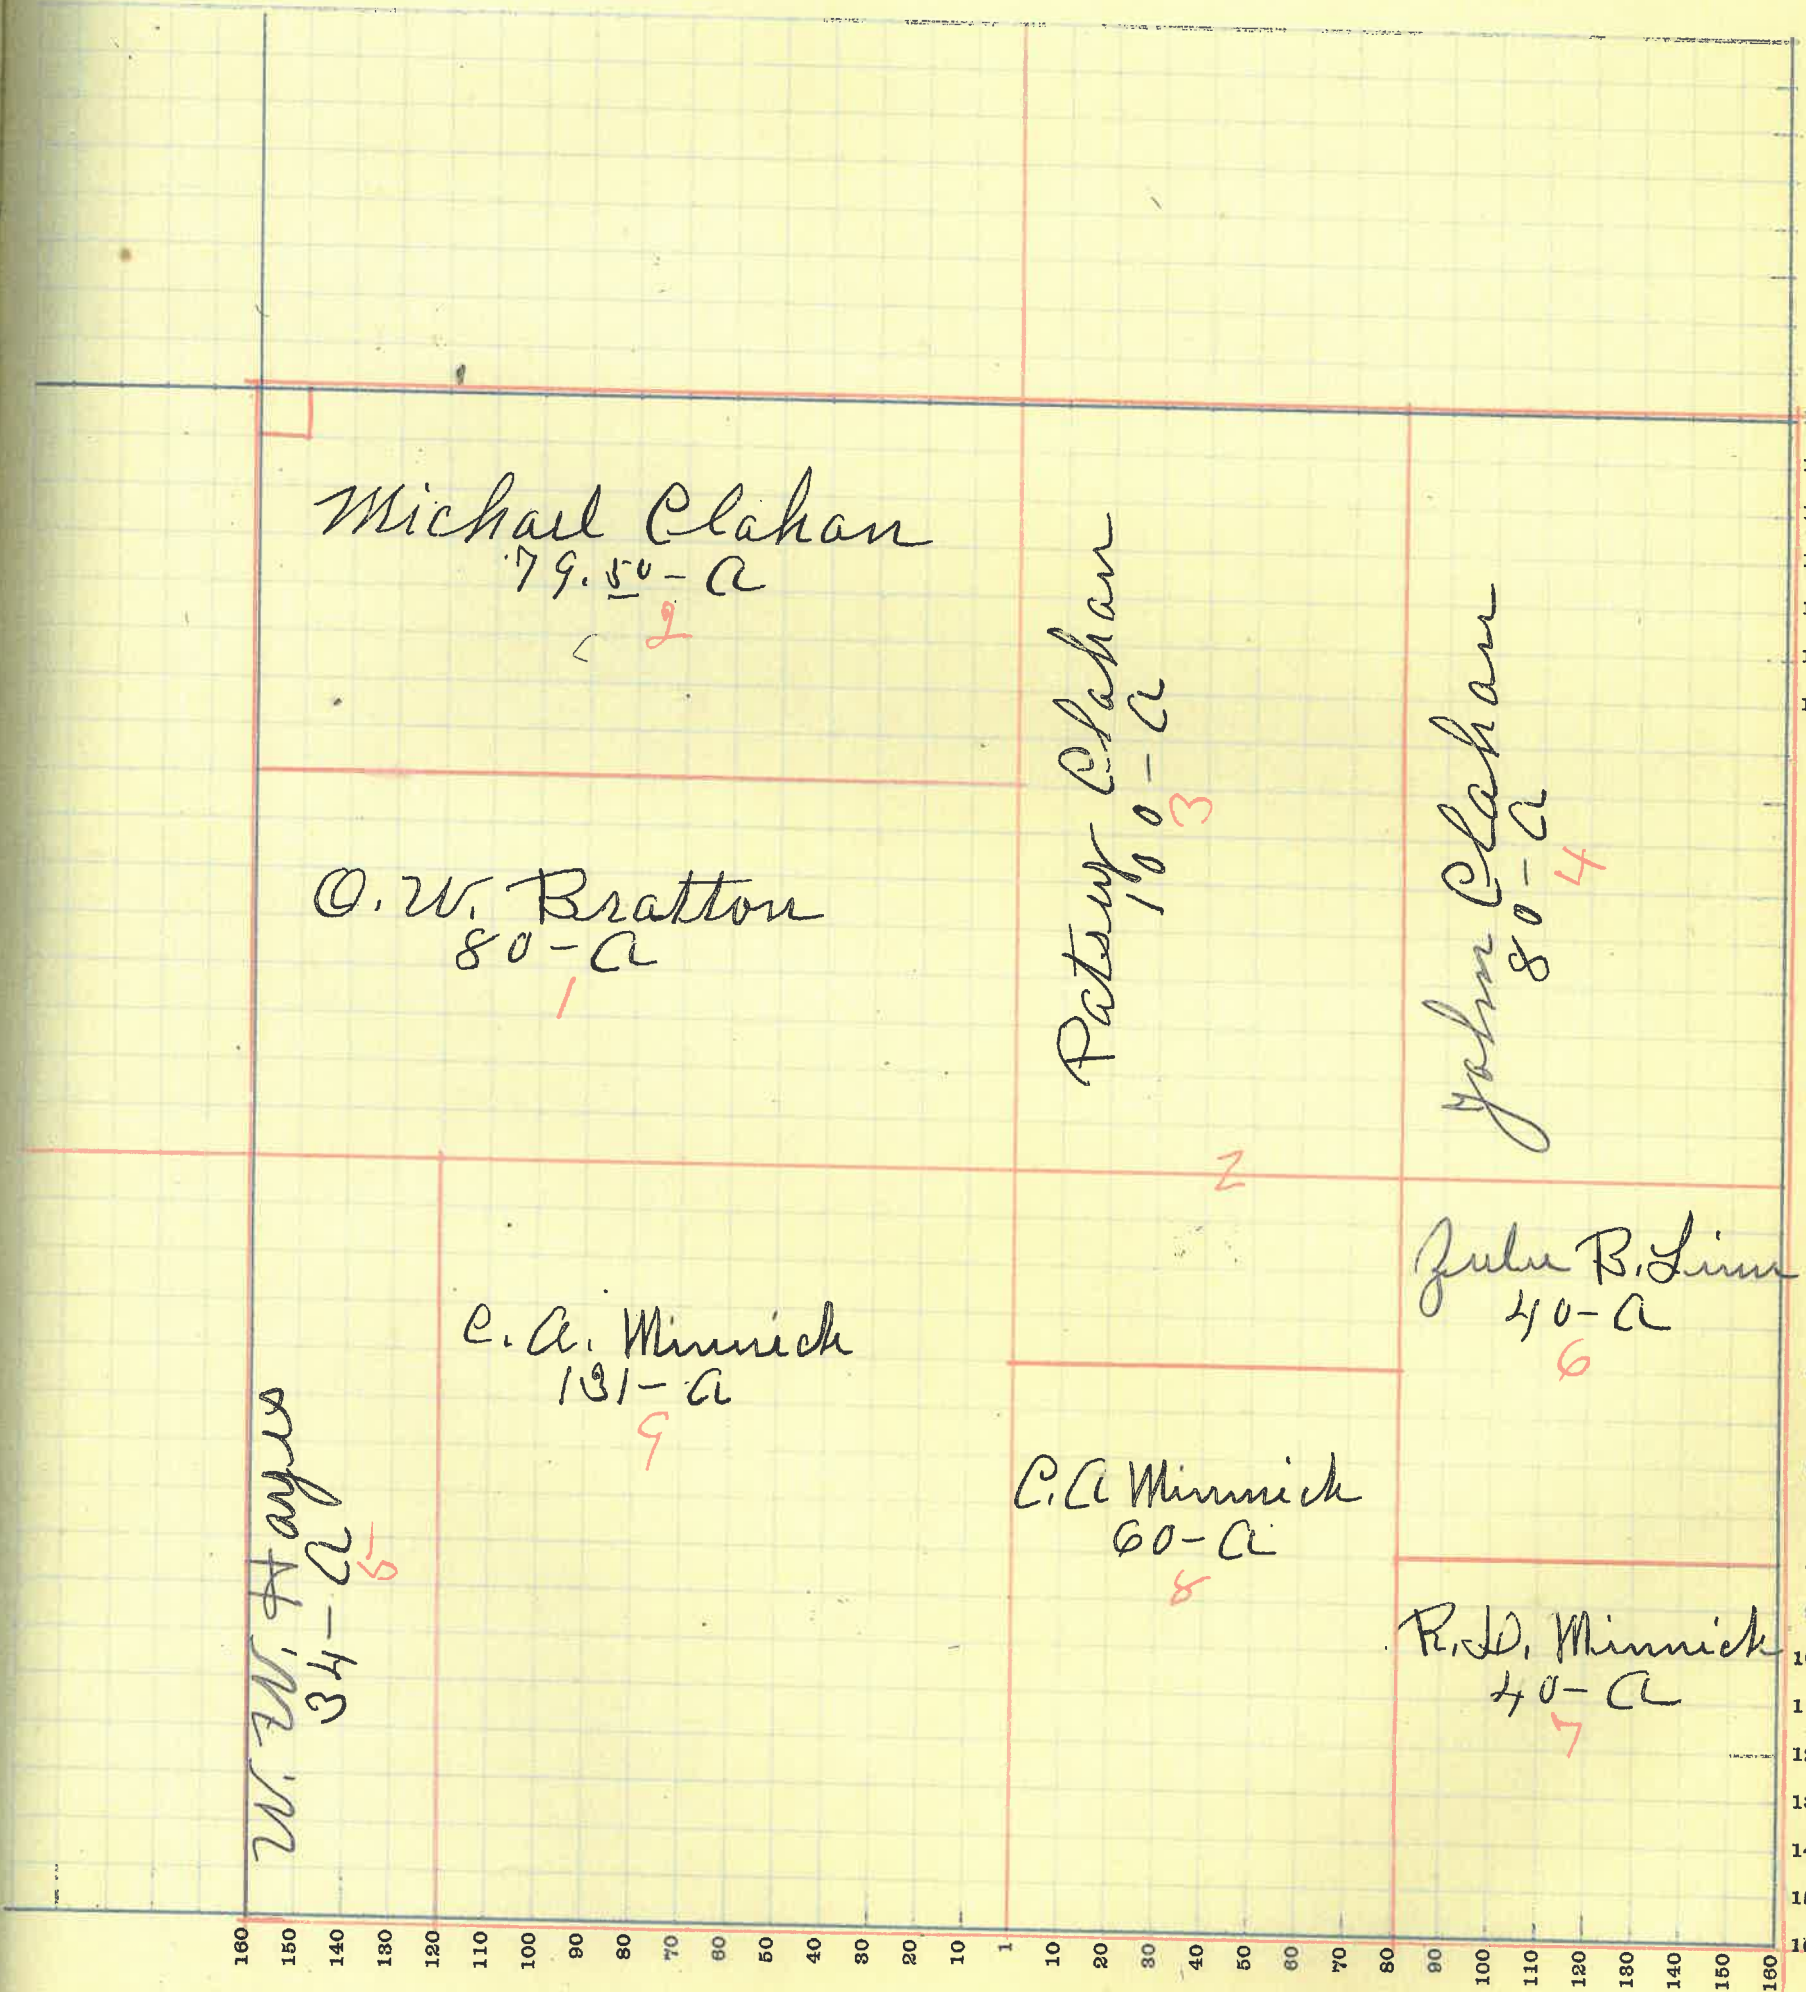 Michael Clahan
79.50-A
2
O.W. Bratton
80-A
1
Patsey Clahan
100-A
3
John Clahan
80-A
4
2
W.W. Hayes
34-A
5
C.A. Minnick
131-A
9
C.A Minnick
60-A
8
Zulu B. Linn
40-A
6
R.D. Minnick
40-A
7
160 150 140 130 120 110 100 90 80 70 60 50 40 30 20 10 1 10 20 30 40 50 60 70 80 90 100 110 120 130 140 150 160